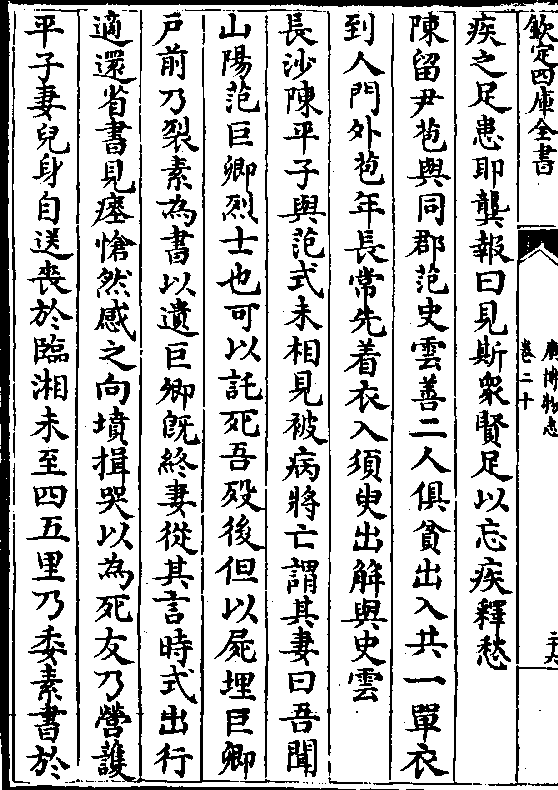 欽定四庫全書
廣博物志
卷二十
疾之足患耶龔報曰見斯衆賢足以忘疾釋愁
陳留尹苞與同郡范史雲善二人俱貧出入共一單衣
到人門外苞年長常先着衣入須臾出解與史雲
長沙陳平子與范式未相見被病將亡謂其妻曰吾聞
山陽范巨卿烈士也可以託死吾殁後但以屍埋巨卿
戸前乃裂素為書以遺巨卿既終妻從其言時式出行
適還省書見瘞愴然感之向墳揖哭以為死友乃營護
平子妻兒身自送喪於臨湘未至四五里乃委素書於